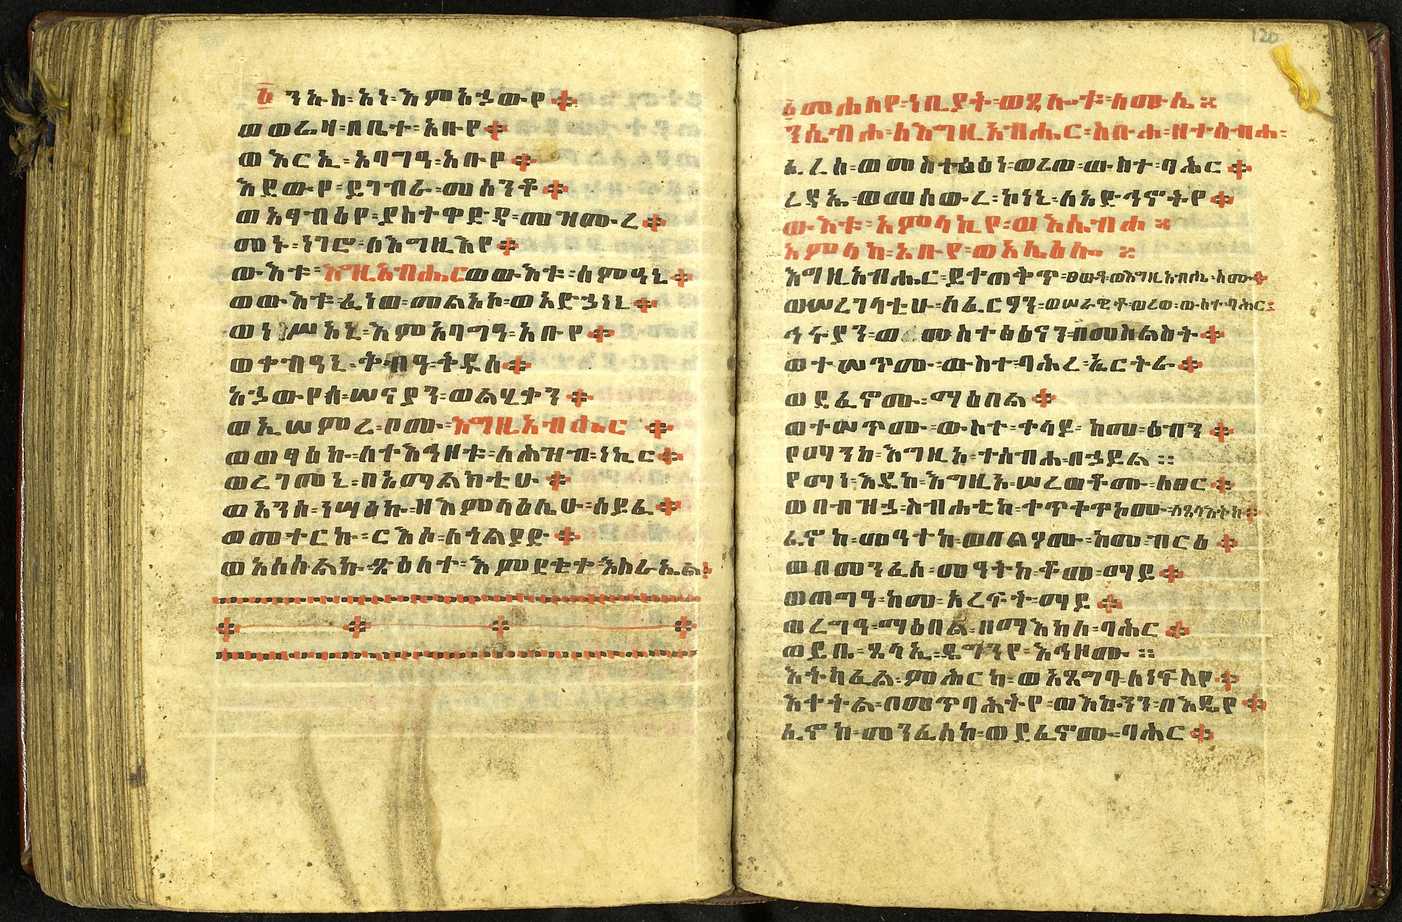 ፩ ንኡስ፡ አነ፡ እምአኃውየ
ወወሬዛ፡ በቤተ፡ አቡየ
ወእርኢ፡ አባግዓ፡ አቡየ
እደውየ፡ ይገብራ፡ መሰንቆ
ወአፃብዕየ፡ ያስተዋድዳ፡ መዝሙረ
መኑ፡ ነገሮ፡ ለእግዚእየ
ውእቱ፡ እግዚአብሔር ወውእቱ፡ ሰምዓኒ
ወውእቱ፡ ፈነወ፡ መልአኮ፡ ወአድኃነኒ
ወነሥአኒ፡ እምአባግዓ፡ አቡየ
ወቀብዓኒ፡ ቅብዓ፡ ቅዱስ
አኃውየሰ፡ ሠናያን፡ ወልሂቃን
ወኢሠምረ፡ ቦሙ፡ እግዚአብሔር
ወወፃዕኩ፡ ለተእኅዞቱ፡ ለሕዝብ፡ ነኪር
ወረገመኒ፡ በአማልክቲሁ
ወአንሰ፡ ነሣዕኩ፡ ዘእምሳዕሌሁ፡ ሰይፈ
ወመተርኩ፡ ርእሰ፡ ለጎልያድ
ወአሰሰልኩ፡ ጽዕለተ፡ እምደቂቀ፡ እስራኤል
120
፩መሐልየ፡ ነቢያት፡ ወጸሎቱ፡ ለሙሴ
ንሴብሖ፡ ለእግዚአብሔር፡ ስቡሐ፡ ዘተሰብሐ፡
ፈረሰ፡ ወመስተፅዕነ፡ ወረወ፡ ውስተ፡ ባሕር
ረዳኤ፡ ወመሰውረ፡ ኮነኒ፡ ለአድኅኖትየ
ውእቱ፡ አምላኪየ፡ ወእሴብሖ
አምላከ፡ አቡየ፡ ወአሌዕሎ
እግዚአብሔር፡ ይቀጠቅጥ፡ ፀብዓ፡ ወእግዚአብሔር፡ ስሙ
ወሠረገላቲሁ፡ ለፈርዖን፡ ወሠራዊቶ፡ ወረወ፡ ውስተ፡ ባሕር
ኅሩያን፡ መስተፅዕናን፡ በመስልስት
ወተሠጥሙ፡ ውስተ፡ ባሕረ፡ ኤርትራ
ወደፈኖሙ፡ ማዕበል
ወተሠጥሙ፡ ውስተ፡ ቀላይ፡ ከመ፡ ዕብን
የማንከ፡ እግዚኦ፡ ተሰብሐ፡ በኃይል ።
የማነ፡ እዴከ፡ እግዚኦ፡ ሠረወቶሙ፡ ለፀር
ወበብዝኃ፡ ስብሐቲከ፡ ቀጥቀጥኮሙ፡ ለጸላእትከ
ፈኖከ፡ መዓተከ፡ ወበልዖሙ፡ ከመ፡ ብርዕ
ወበመንፈሰ፡ መዓትከ፡ ቆመ፡ ማይ
ወጠግዓ፡ ከመ፡ አረፍት፡ ማይ
ወረግዓ፡ ማዕበል፡ በማእከለ፡ ባሕር
ወይቤ፡ ጸላኢ፡ ዴግንየ፡ እኅዞሙ ።
እትካፈል፡ ምሕርካ፡ ወአጸግባ፡ ለነፍስየ
እቀትል፡ በመጥባሕትየ፡ ወእኴንን፡ በእዴየ
ፈኖከ፡ መንፈሰከ፡ ወደፈኖሙ፡ ባሕር